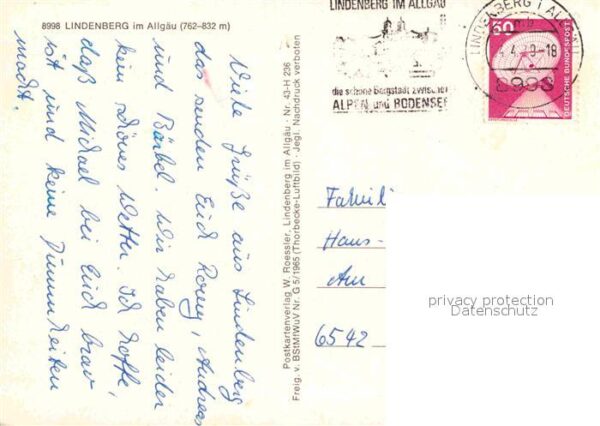 8998 LINDENBERG im Allgäu (762–832 m)
Viele Grüße aus Lindenberg
da senden Euch Romy, Andreas
und Bärbel. Wir haben leider
kein schönes Wetter. Ich hoffe,
daß Michael bei Euch brav
ist und keine Dummheiten
macht.
Postkartenverlag W. Roessler, Lindenberg im Allgäu · Nr. 43-H 236
Freig. v. BStMfWuV Nr. G 5/1965 (Thorbecke-Luftbild) · Jegl. Nachdruck verboten
LINDENBERG IM ALLGÄU
die schöne Bergstadt zwischen
ALPEN und BODENSEE
LINDENBERG I ALLGÄU
-18
8998
50
DEUTSCHE BUNDESPOST
Famili
Hans-
Am
6542
privacy protection
Datenschutz